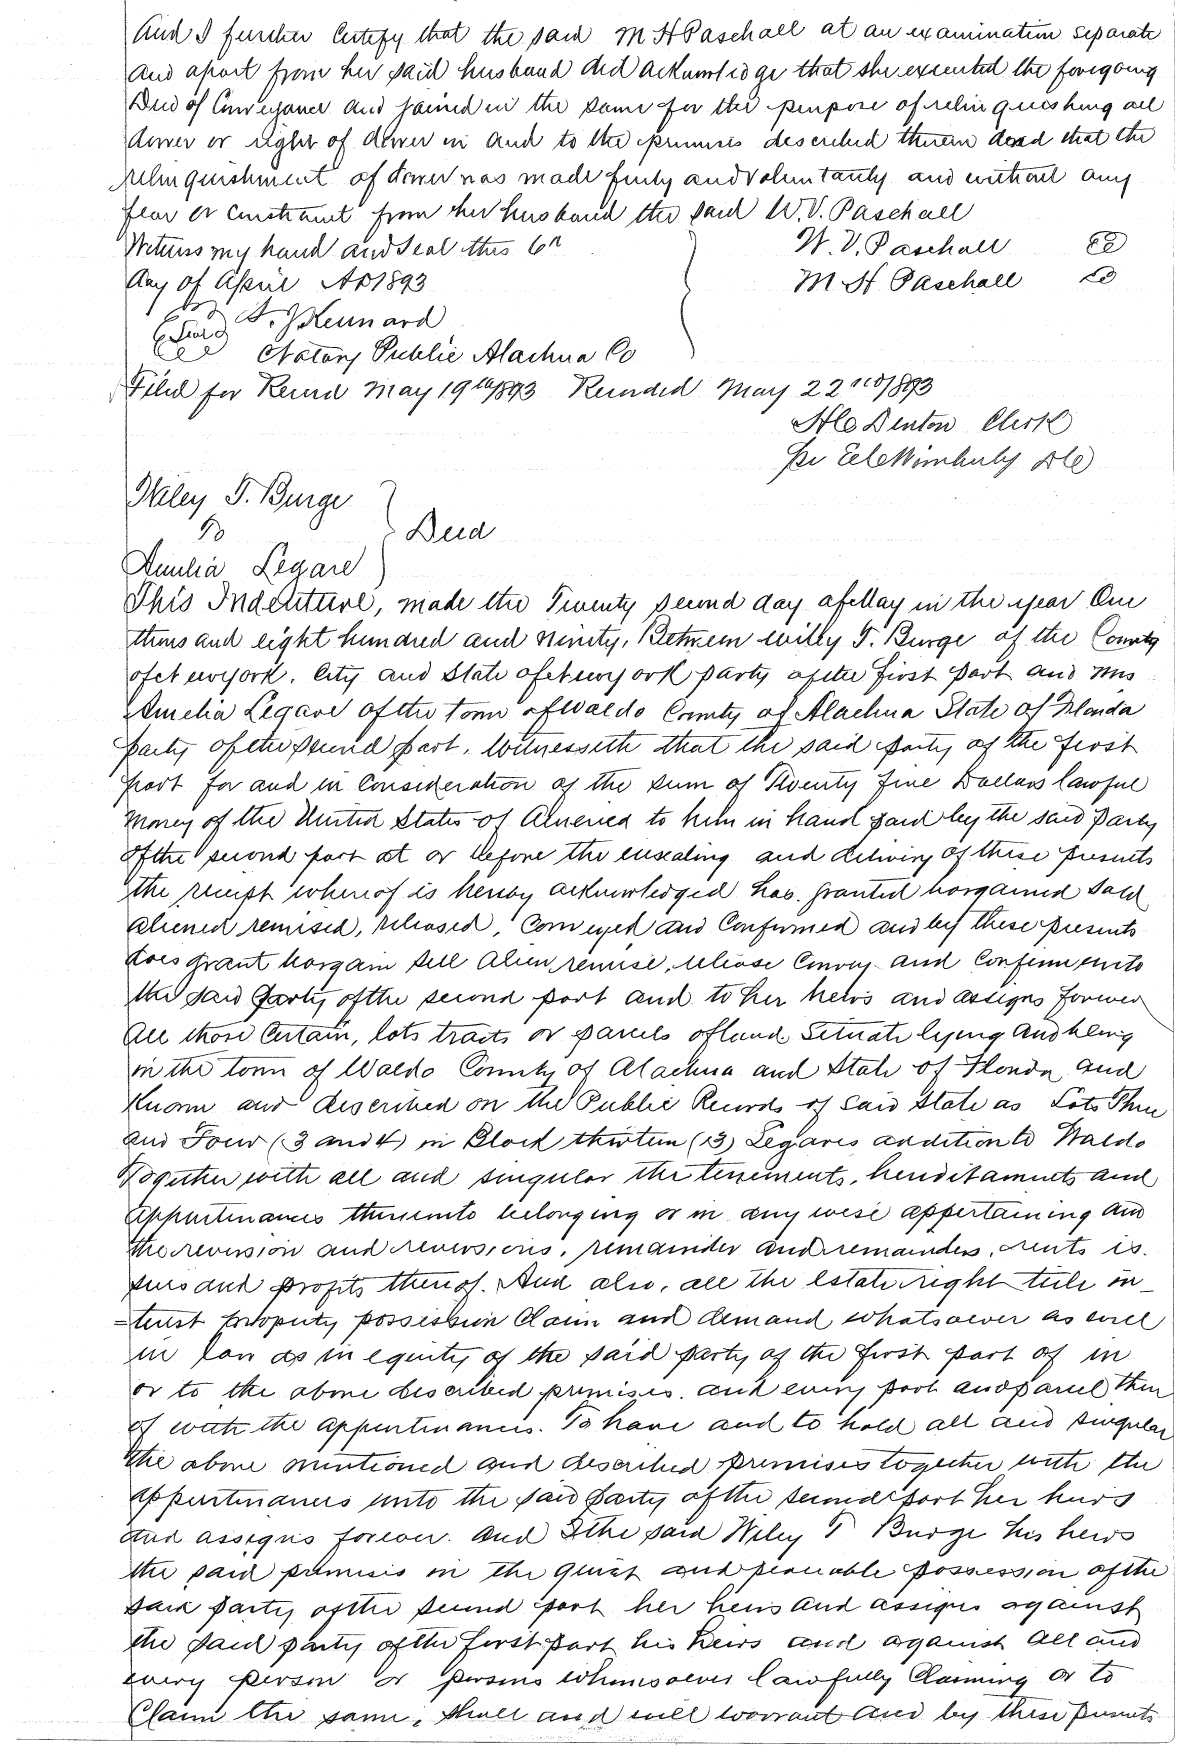 And I further Certify that the said M H Paschall at an examination separate
and apart from her said husband did acknowledge that she executed the foregoing
Deed of Conveyance and joined in the same for the purpose of relinquishing all
dower or right of dower in and to the premises described therein and that the
relinquishment of dower was made freely and voluntarily and without any
fear or constraint from her husband the said W. V. Paschall
Witness my hand and seal this 6th
W. V. Paschall
day of April AD 1893
M H Paschall
Seal
Kennard
Notary Public Alachua Co
Filed for Record May 19th 1893 Recorded May 22nd 1893
H C Denton Clerk
per Wimberly D C
Wiley T. Burge
To
Deed
Amelia Legare
This Indenture, made the Twenty second day of May in the year One
thousand eight hundred and ninety, Between Wiley T. Burge of the County
of New york, City and State of New york party of the first part and Mrs
Amelia Legare of the town of Waldo County of Alachua State of Florida
party of the second part, Witnesseth that the said party of the first
part for and in Consideration of the sum of Twenty five Dollars lawful
money of the United States of America to him in hand paid by the said Party
of the second part at or before the ensealing and delivery of these presents
the receipt whereof is hereby acknowledged has granted bargained sold
aliened remised, released, Conveyed and Confirmed and by these presents
does grant bargain sell alien, remise, release Convey and Confirm unto
the said Party of the second part and to her heirs and assigns forever
All those Certain, lots tracts or parcels of land Situate lying and being
in the town of Waldo County of Alachua and State of Florida and
Known and described on the Public Records of said State as Lots Three
and Four (3 and 4) in Block thirteen (13) Legares addition to Waldo
Together with all and singular the tenements, hereditaments and
appurtenances thereunto belonging or in any wise appertaining and
the reversion and reversions, remainder and remainders, rents is
sues and profits thereof. And also, all the estate right title in-
=terest property possession Claim and demand whatsoever as well
in law as in equity of the said party of the first part of in
or to the above described premises and every part and parcel there
of with the appurtenances. To have and to hold all and singular
the above mentioned and described premises together with the
appurtenances unto the said Party of the second part her heirs
and assigns forever. And I the said Wiley T Burge his heirs
the said premises in the quiet and peaceable possession of the
said party of the second part her heirs and assigns against
the said party of the first part his heirs and against all and
every person or persons whomsoever lawfully Claiming or to
Claim the same, shall and will warrant and by these presents